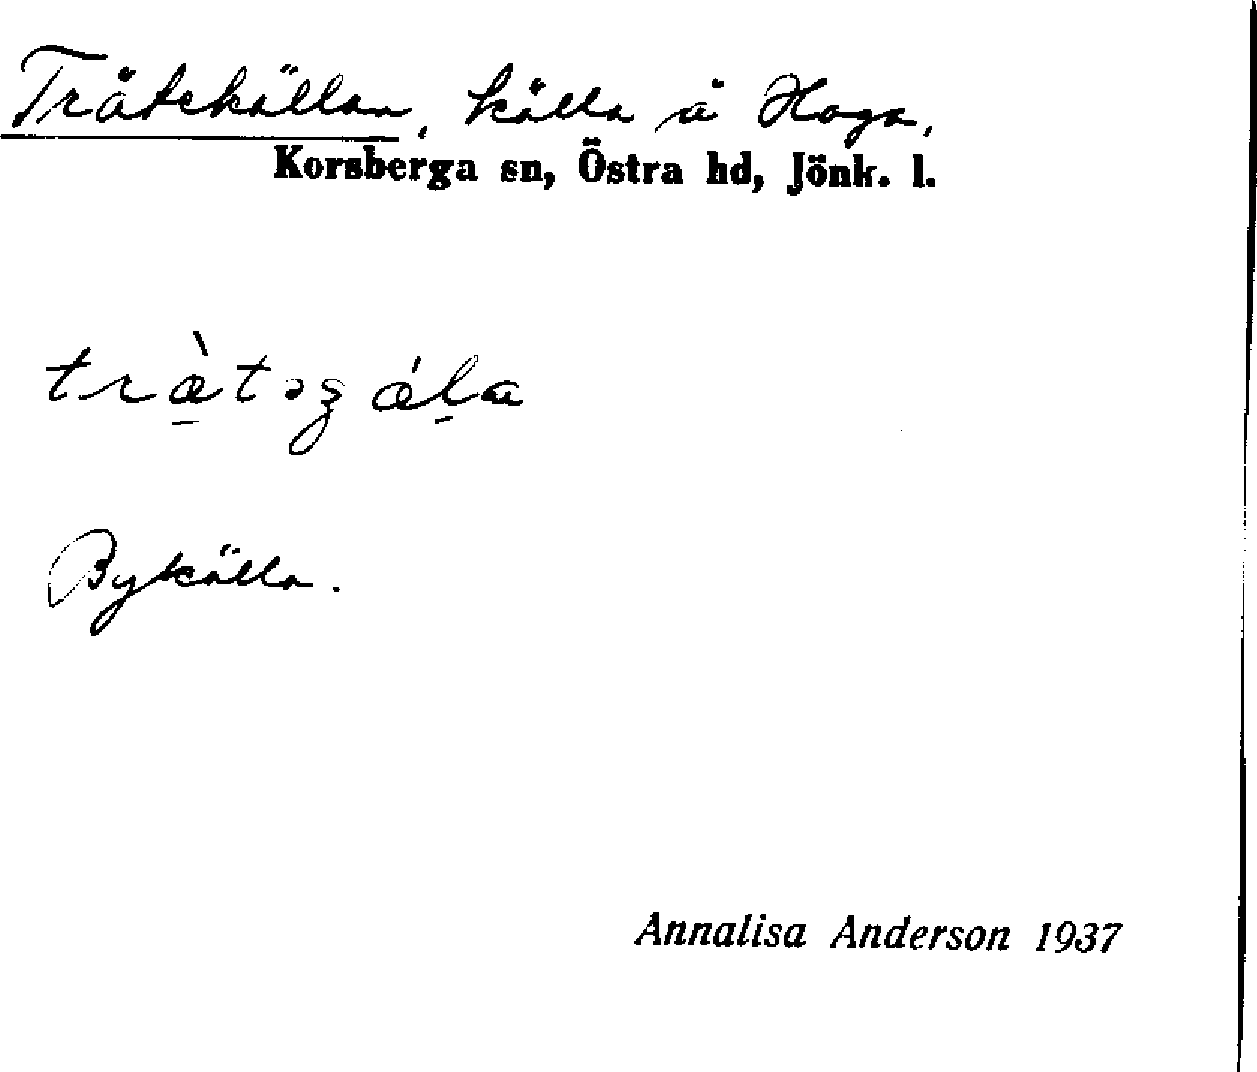 Trätekällan, källa å Haga,
Korsberga sn, Östra hd, Jönk. l.
Bykälla.
Annalisa Anderson 1937